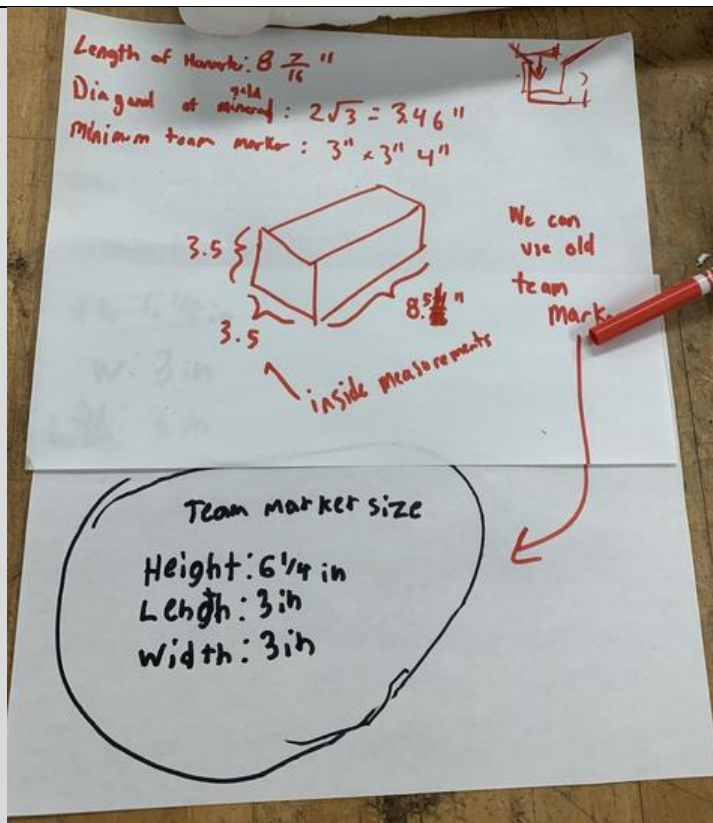 Length of : 8 7/16 "
Diagand of gold mineral : 2√3 = 3.46 "
Minimum team marker : 3" x 3" 4"
3.5
3.5
8.5 "
inside measurements
We can
use old
team
Mark
Team marker size
Height: 6 1/4 in
Length: 3 in
Width: 3 in
W: 3 in